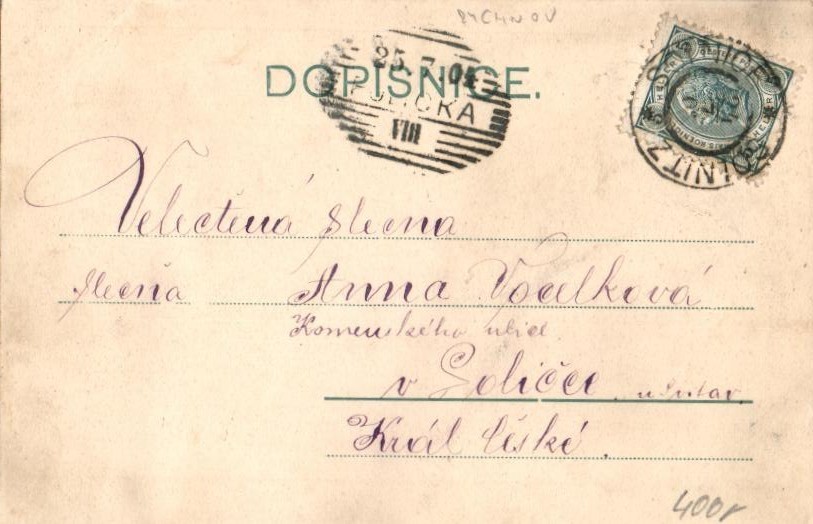 RYCHNOV
DOPISNICE.
25. 7. 01
POLIČKA
VIII
Velectěná slečna
slečna Anna Vocelková
Komenského ulice
v Poličce u Svitav.
Král. České.
400,-